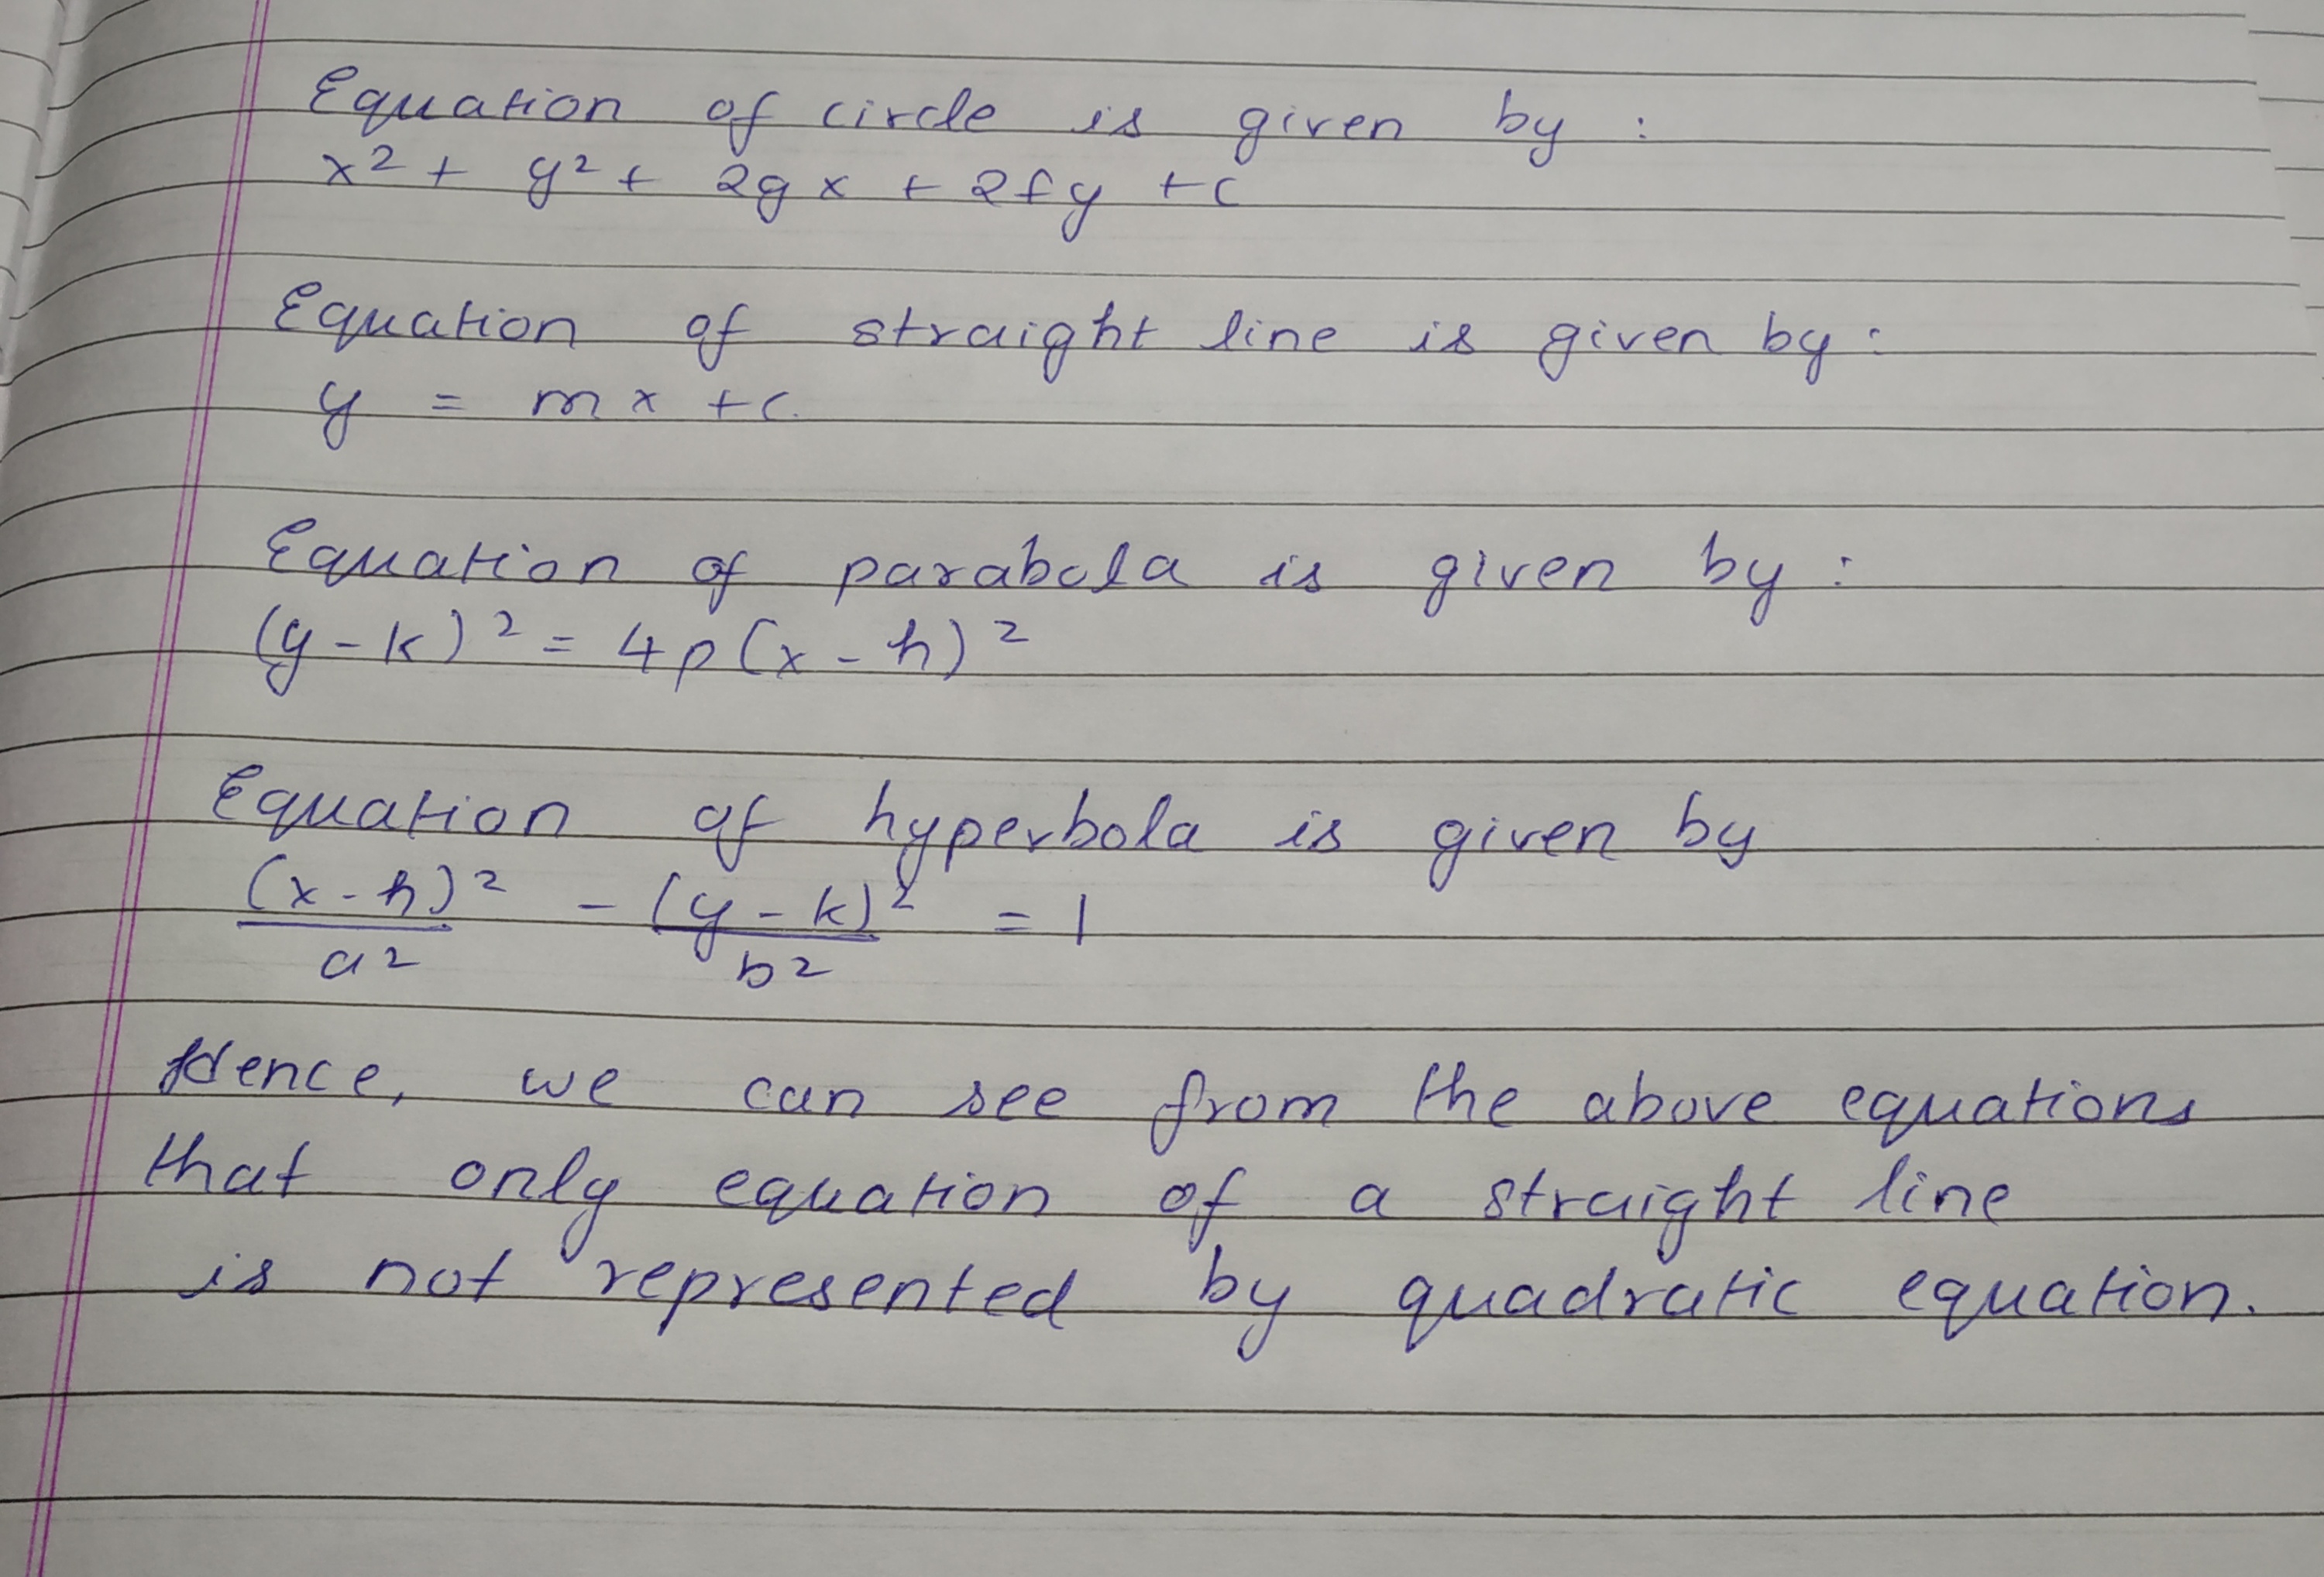 Equation of circle is given by :
x² + y² + 2gx + 2fy + c
Equation of straight line is given by :
y = mx + c.
Equation of parabola is given by :
(y - k)² = 4p(x - h)²
Equation of hyperbola is given by
(x - h)²/a² - (y - k)²/b² = 1
Hence, we can see from the above equations
that only equation of a straight line
is not represented by quadratic equation.